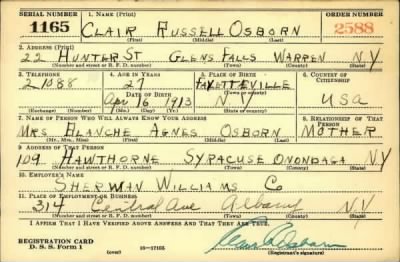 SERIAL NUMBER 1. NAME (Print) ORDER NUMBER
1165 CLAIR RUSSELL OSBORN 2588
(First) (Middle) (Last)
2. ADDRESS (Print)
22 HUNTER ST GLENS FALLS WARREN N.Y.
(Number and street or R. F. D. number) (Town) (County) (State)
3. TELEPHONE 4. AGE IN YEARS 5. PLACE OF BIRTH 6. COUNTRY OF CITIZENSHIP
21088 27 FAYETTEVILLE
DATE OF BIRTH (Town or county)
Apr 16 1913 N Y USA
(Exchange) (Number) (Mo.) (Day) (Yr.) (State or country)
7. NAME OF PERSON WHO WILL ALWAYS KNOW YOUR ADDRESS 8. RELATIONSHIP OF THAT PERSON
MRS BLANCHE AGNES OSBORN MOTHER
(Mr., Mrs., Miss) (First) (Middle) (Last)
9. ADDRESS OF THAT PERSON
109 HAWTHORNE SYRACUSE ONONDAGA N.Y
(Number and street or R. F. D. number) (Town) (County) (State)
10. EMPLOYER'S NAME
SHERWIN WILLIAMS CO
11. PLACE OF EMPLOYMENT OR BUSINESS
314 Central Ave Albany N.Y
(Number and street or R. F. D. number) (Town) (County) (State)
I AFFIRM THAT I HAVE VERIFIED ABOVE ANSWERS AND THAT THEY ARE TRUE.
REGISTRATION CARD
D. S. S. Form 1 16—17105 (Registrant's signature)